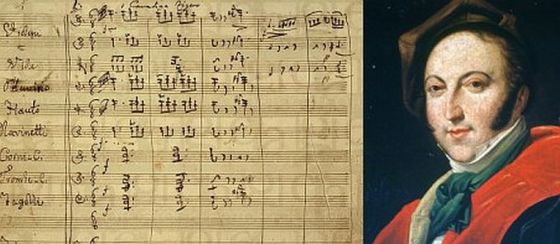 Cavatina Figaro
Violini
Viole
Ottavino
Flauto
Clarinetti
Corni C.
Trombe C.
Fagotti